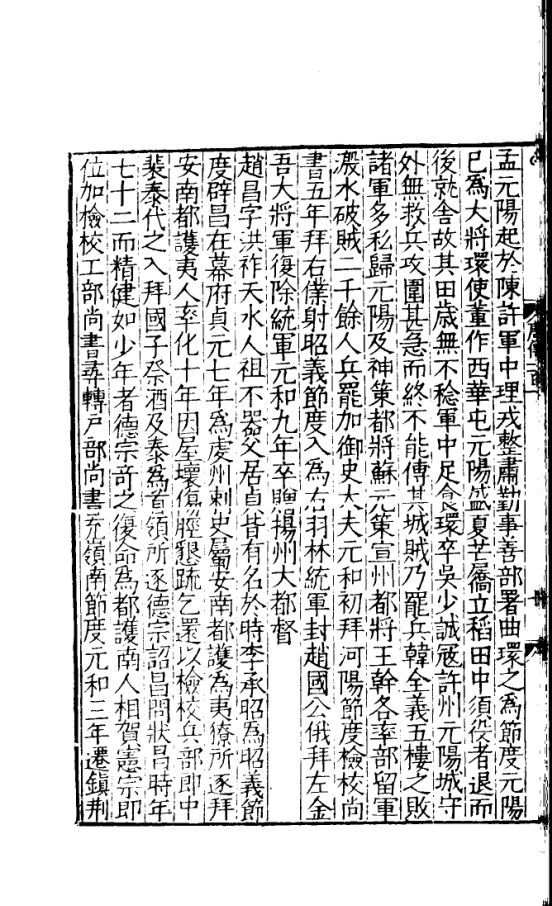 孟元陽起於陳許軍中理戎整肅勤事善部署曲環之為節度元陽
已為大將環使董作西華屯元陽盛夏芒屩立稻田中須役者退而
後就舍故其田歲無不稔軍中足食環卒吳少誠宼許州元陽城守
外無救兵攻圍甚急而終不能傅其城賊乃罷兵韓全義五樓之敗
諸軍多私歸元陽及神策都將蘇元策宣州都將王幹各率部留軍
溵水破賊二千餘人兵罷加御史大夫元和初拜河陽節度檢校尚
書五年拜右僕射昭義節度入為右羽林統軍封趙國公俄拜左金
吾大將軍復除統軍元和九年卒贈揚州大都督
趙昌字洪祚天水人祖不器父居貞皆有名於時李承昭為昭義節
度辟昌在幕府貞元七年為虔州刺史屬安南都護為夷獠所逐拜
安南都護夷人率化十年因屋壞傷脛懇疏乞還以檢校兵部郎中
裴泰代之入拜國子祭酒及泰為首領所逐德宗詔昌問狀昌時年
七十二而精健如少年者德宗奇之復命為都護南人相賀憲宗即
位加檢校工部尚書尋轉戶部尚書充嶺南節度元和三年遷鎮荆